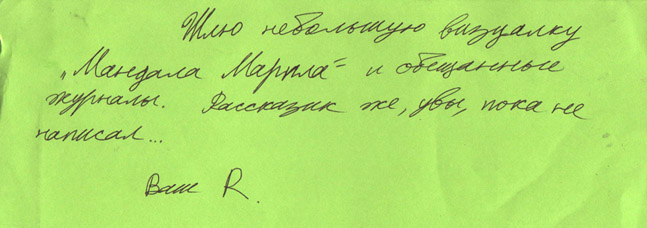 Шлю небольшую визуалку
„Мандала Марпла“ и обещанные
журналы. Рассказик же, увы, пока не
написал...
Ваш R.